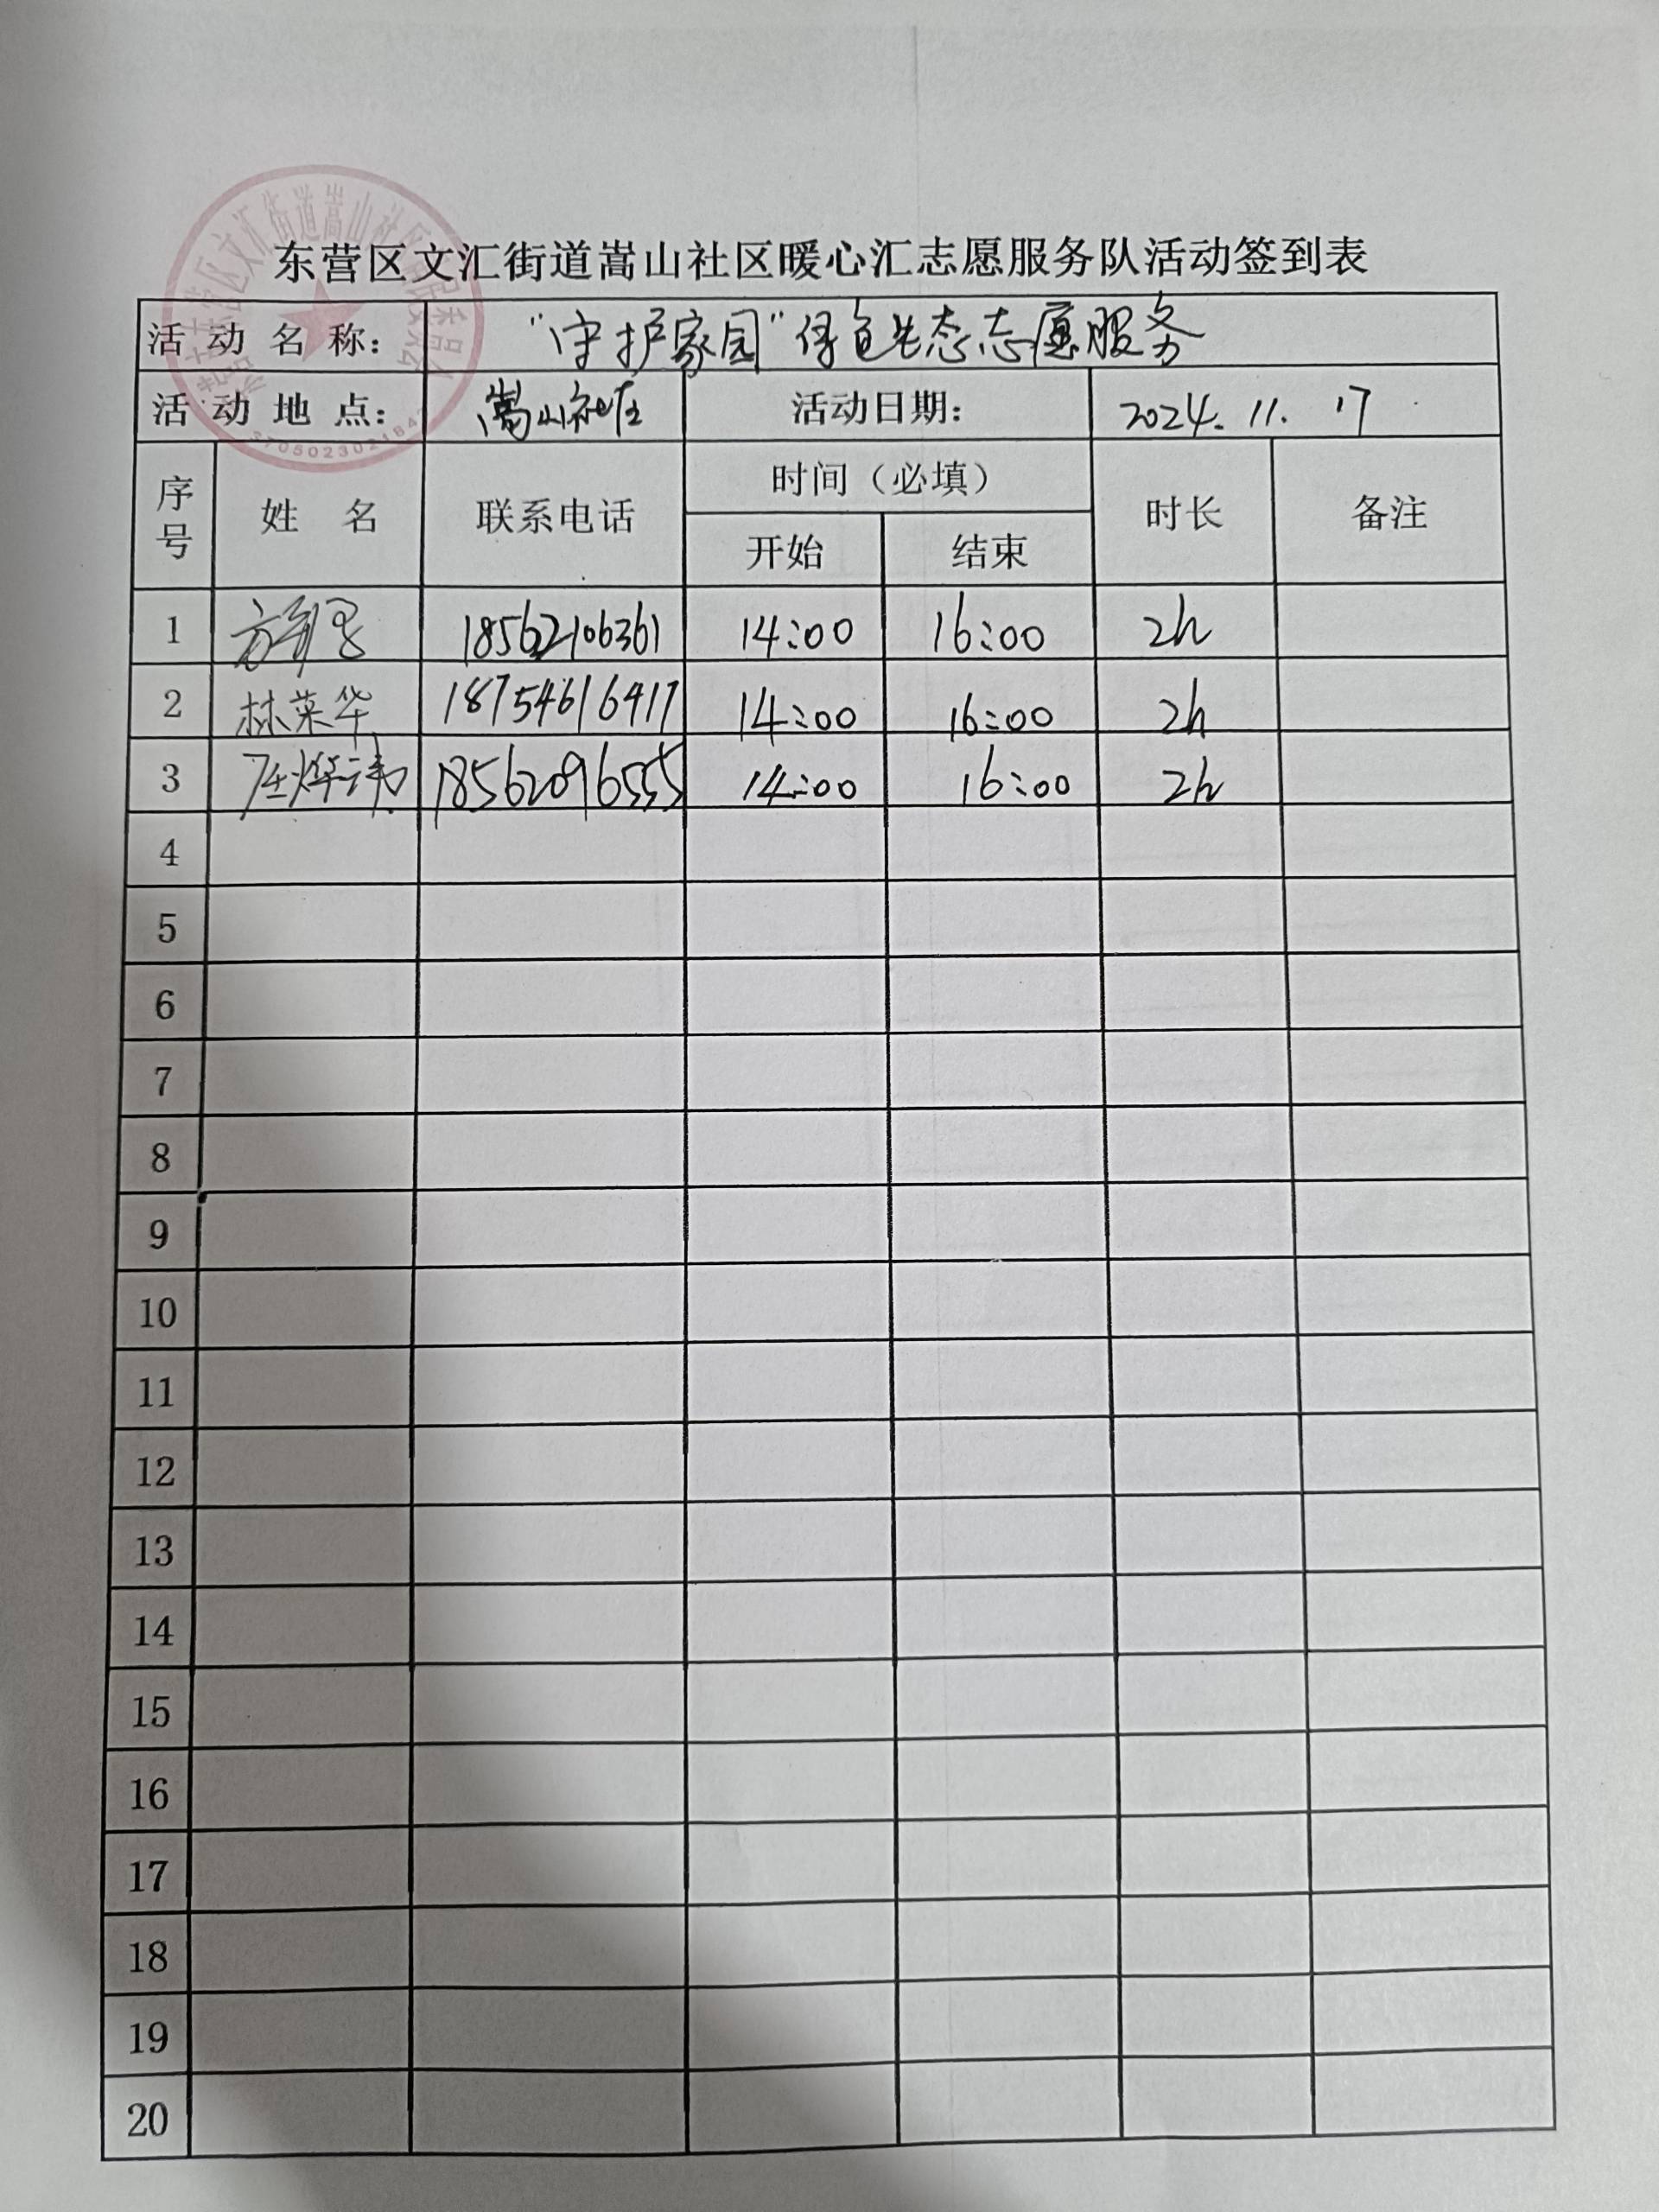 东营区文汇街道嵩山社区暖心汇志愿服务队活动签到表
活动名称： "守护家园"绿色生态志愿服务
活动地点： 嵩山社区 活动日期： 2024.11.17
序号 姓名 联系电话 时间（必填） 时长 备注
开始 结束
1 18562106361 14:00 16:00 2h
2 林荣华 18754616417 14:00 16:00 2h
3 18562096555 14:00 16:00 2h
4
5
6
7
8
9
10
11
12
13
14
15
16
17
18
19
20